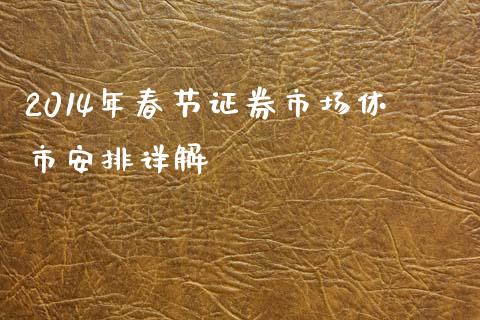 2014年春节证券市场休
市安排详解